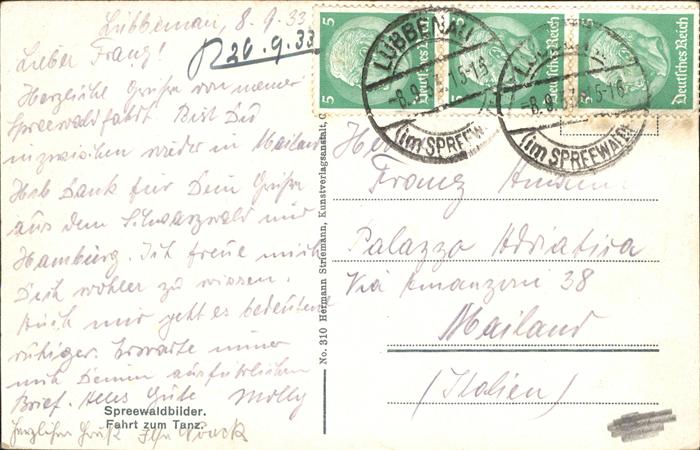 Lübbenau, 8.9.33.
Lieber Franz!
R 20.9.33
Herzliche Grüße von meiner
Spreewaldfahrt. Bist Du
inzwischen wieder in Mailand
Hab Dank für Dein Grüße
aus dem Schwarzwald und
Hamburg. Ich freue mich
Dich wohler zu wissen.
Auch mir geht es bedeutend
ruhiger. Erwarte immer
noch Deinen ausführlichen
Brief. Alles Gute Molly
Herzliche Grüße
Spreewaldbilder.
Fahrt zum Tanz.
No. 310 Hermann Striemann, Kunstverlagsanstalt, C
5 Deutsches Reich
5 Deutsches Reich
5 Deutsches Reich
LÜBBENAU
-8.9.33 15-16
(im SPREEWALD)
LÜBBENAU
-8.9.33 15-16
(im SPREEWALD)
Herrn
Franz
Palazzo Adriatica
Via Amanzoni 38
Mailand
(Italien)